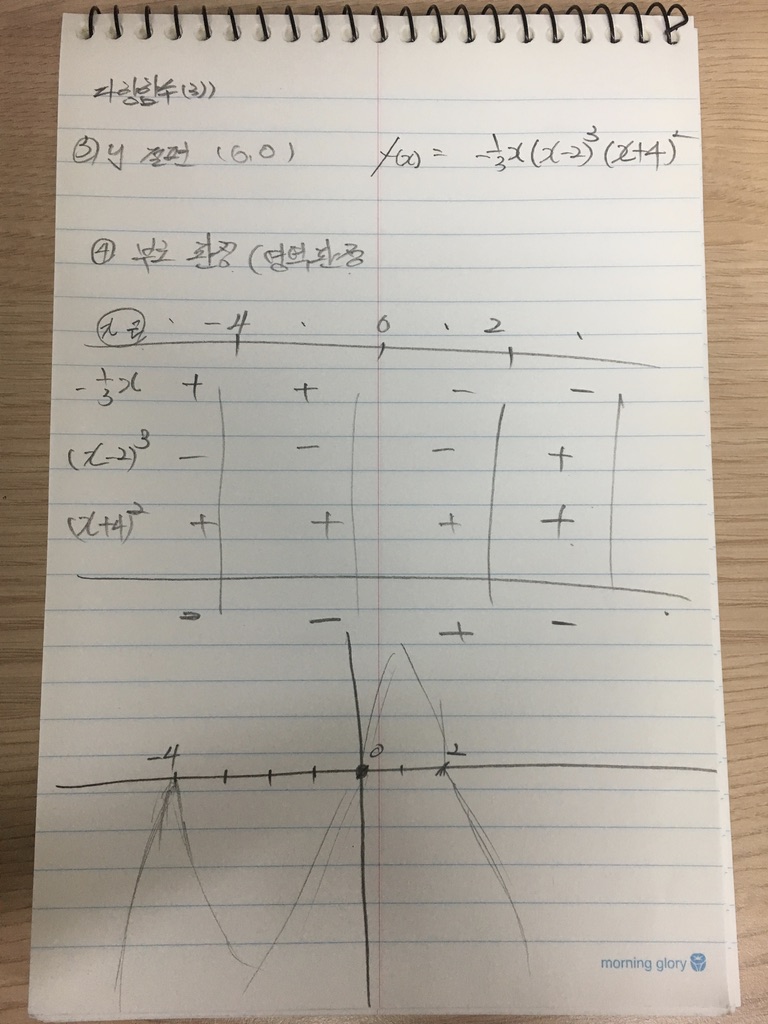 다항함수(3))
③ y 절편 (0,0) f(x) = -1/3x(x-2)³(x+4)²
④ 부호 판정 (영역판정
x축 -4 0 2
-1/3x + + - -
(x-2)³ - - - +
(x+4)² + + + +
- - + -
-4 0 2
morning glory